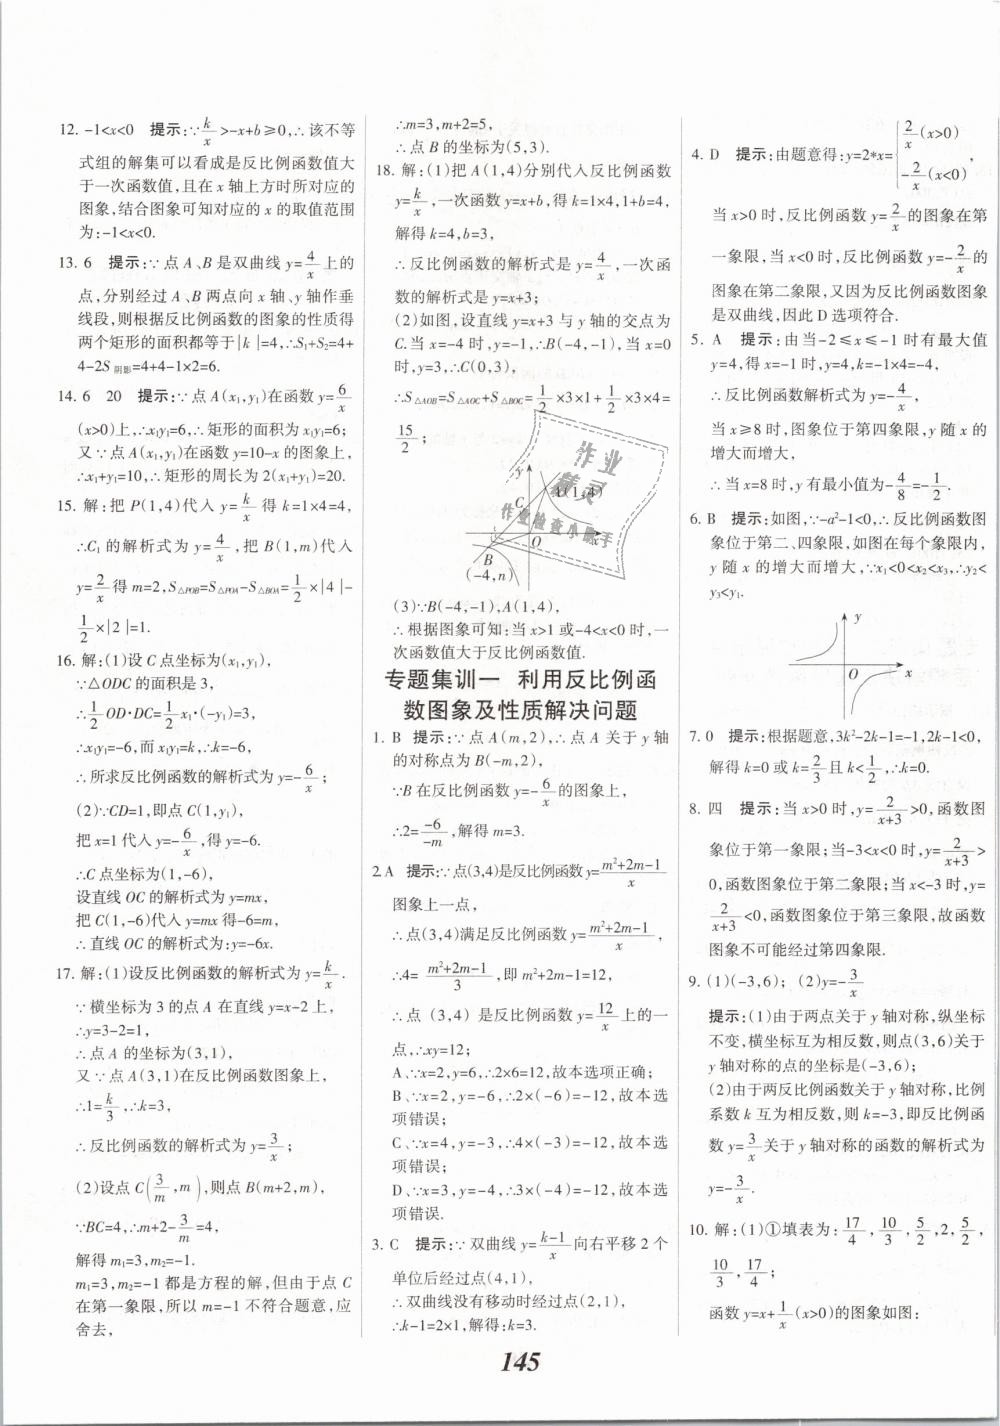 12. -1<x<0　提示:∵k/x>-x+b≥0,∴该不等
式组的解集可以看成是反比例函数值大
于一次函数值,且在 x 轴上方时所对应的
图象,结合图象可知对应的 x 的取值范围
为:-1<x<0.
13. 6　提示:∵点 A、B 是双曲线 y=4/x 上的
点,分别经过 A、B 两点向 x 轴、y 轴作垂
线段,则根据反比例函数的图象的性质得
两个矩形的面积都等于|k|=4,∴S₁+S₂=4+
4-2S阴影=4+4-1×2=6.
14. 6　20　提示:∵点 A(x₁,y₁)在函数 y=6/x
(x>0)上,∴x₁y₁=6,∴矩形的面积为 x₁y₁=6;
又∵点 A(x₁,y₁)在函数 y=10-x 的图象上,
∴x₁+y₁=10,∴矩形的周长为 2(x₁+y₁)=20.
15. 解:把 P(1,4)代入 y=k/x 得 k=1×4=4,
∴C₁ 的解析式为 y=4/x,把 B(1,m)代入
y=2/x 得 m=2,S△POB=S△POA-S△BOA=1/2×|4|-
1/2×|2|=1.
16. 解:(1)设 C 点坐标为(x₁,y₁),
∵△ODC 的面积是 3,
∴1/2OD·DC=1/2x₁·(-y₁)=3,
∴x₁y₁=-6,而 x₁y₁=k,∴k=-6,
∴所求反比例函数的解析式为 y=-6/x;
(2)∵CD=1,即点 C(1,y₁),
把 x=1 代入 y=-6/x,得 y=-6.
∴C 点坐标为(1,-6),
设直线 OC 的解析式为 y=mx,
把 C(1,-6)代入 y=mx 得-6=m,
∴直线 OC 的解析式为:y=-6x.
17. 解:(1)设反比例函数的解析式为 y=k/x.
∵横坐标为 3 的点 A 在直线 y=x-2 上,
∴y=3-2=1,
∴点 A 的坐标为(3,1),
又∵点 A(3,1)在反比例函数图象上,
∴1=k/3,∴k=3,
∴反比例函数的解析式为 y=3/x;
(2)设点 C(3/m,m),则点 B(m+2,m),
∵BC=4,∴m+2-3/m=4,
解得 m₁=3,m₂=-1.
m₁=3,m₂=-1 都是方程的解,但由于点 C
在第一象限,所以 m=-1 不符合题意,应
舍去,
∴m=3,m+2=5,
∴点 B 的坐标为(5,3).
18. 解:(1)把 A(1,4)分别代入反比例函数
y=k/x,一次函数 y=x+b,得 k=1×4,1+b=4,
解得 k=4,b=3,
∴反比例函数的解析式是 y=4/x,一次函
数的解析式是 y=x+3;
(2)如图,设直线 y=x+3 与 y 轴的交点为
C.当 x=-4 时,y=-1,∴B(-4,-1),当 x=0
时,y=3,∴C(0,3),
∴S△AOB=S△AOC+S△BOC=1/2×3×1+1/2×3×4=
15/2;
y
A(1,4)
C
O
x
B
(-4,n)
作业
精灵
作业检查小助手
(3)∵B(-4,-1),A(1,4),
∴根据图象可知:当 x>1 或-4<x<0 时,一
次函数值大于反比例函数值.
专题集训一　利用反比例函
数图象及性质解决问题
1. B　提示:∵点 A(m,2),∴点 A 关于 y 轴
的对称点为 B(-m,2),
∵B 在反比例函数 y=-6/x 的图象上,
∴2=-6/-m,解得 m=3.
2 A　提示:∵点(3,4)是反比例函数 y=m²+2m-1/x
图象上一点,
∴点(3,4)满足反比例函数 y=m²+2m-1/x,
∴4=m²+2m-1/3,即 m²+2m-1=12,
∴点(3,4)是反比例函数 y=12/x 上的一
点,∴xy=12;
A、∵x=2,y=6,∴2×6=12,故本选项正确;
B、∵x=2,y=-6,∴2×(-6)=-12,故本选
项错误;
C、∵x=4,y=-3,∴4×(-3)=-12,故本选
项错误;
D、∵x=3,y=-4,∴3×(-4)=-12,故本选
项错误.
3. C　提示:∵双曲线 y=k-1/x 向右平移 2 个
单位后经过点(4,1),
∴双曲线没有移动时经过点(2,1),
∴k-1=2×1,解得:k=3.
4. D　提示:由题意得:y=2*x={2/x(x>0) -2/x(x<0),
当 x>0 时,反比例函数 y=2/x 的图象在第
一象限,当 x<0 时,反比例函数 y=-2/x 的
图象在第二象限,又因为反比例函数图象
是双曲线,因此 D 选项符合.
5. A　提示:由当-2≤x≤-1 时有最大值
y=4,得 x=-1 时,y=4,k=-1×4=-4,
∴反比例函数解析式为 y=-4/x,
当 x≥8 时,图象位于第四象限,y 随 x 的
增大而增大,
∴当 x=8 时,y 有最小值为-4/8=-1/2.
6. B　提示:如图,∵-a²-1<0,∴反比例函数图
象位于第二、四象限,如图在每个象限内,
y 随 x 的增大而增大,∵x₁<0<x₂<x₃,∴y₂<
y₃<y₁.
y
O
x
7. 0　提示:根据题意,3k²-2k-1=-1,2k-1<0,
解得 k=0 或 k=2/3且 k<1/2,∴k=0.
8. 四　提示:当 x>0 时,y=2/x+3>0,函数图
象位于第一象限;当-3<x<0 时,y=2/x+3>
0,函数图象位于第二象限;当 x<-3 时,y=
2/x+3<0,函数图象位于第三象限,故函数
图象不可能经过第四象限.
9. (1)(-3,6); (2)y=-3/x
提示:(1)由于两点关于 y 轴对称,纵坐标
不变,横坐标互为相反数,则点(3,6)关于
y 轴对称的点的坐标是(-3,6);
(2)由于两反比例函数关于 y 轴对称,比例
系数 k 互为相反数,则 k=-3,即反比例函
数 y=3/x关于 y 轴对称的函数的解析式为
y=-3/x.
10. 解:(1)①填表为:17/4,10/3,5/2,2,5/2,
10/3,17/4;
函数 y=x+1/x(x>0)的图象如图:
145